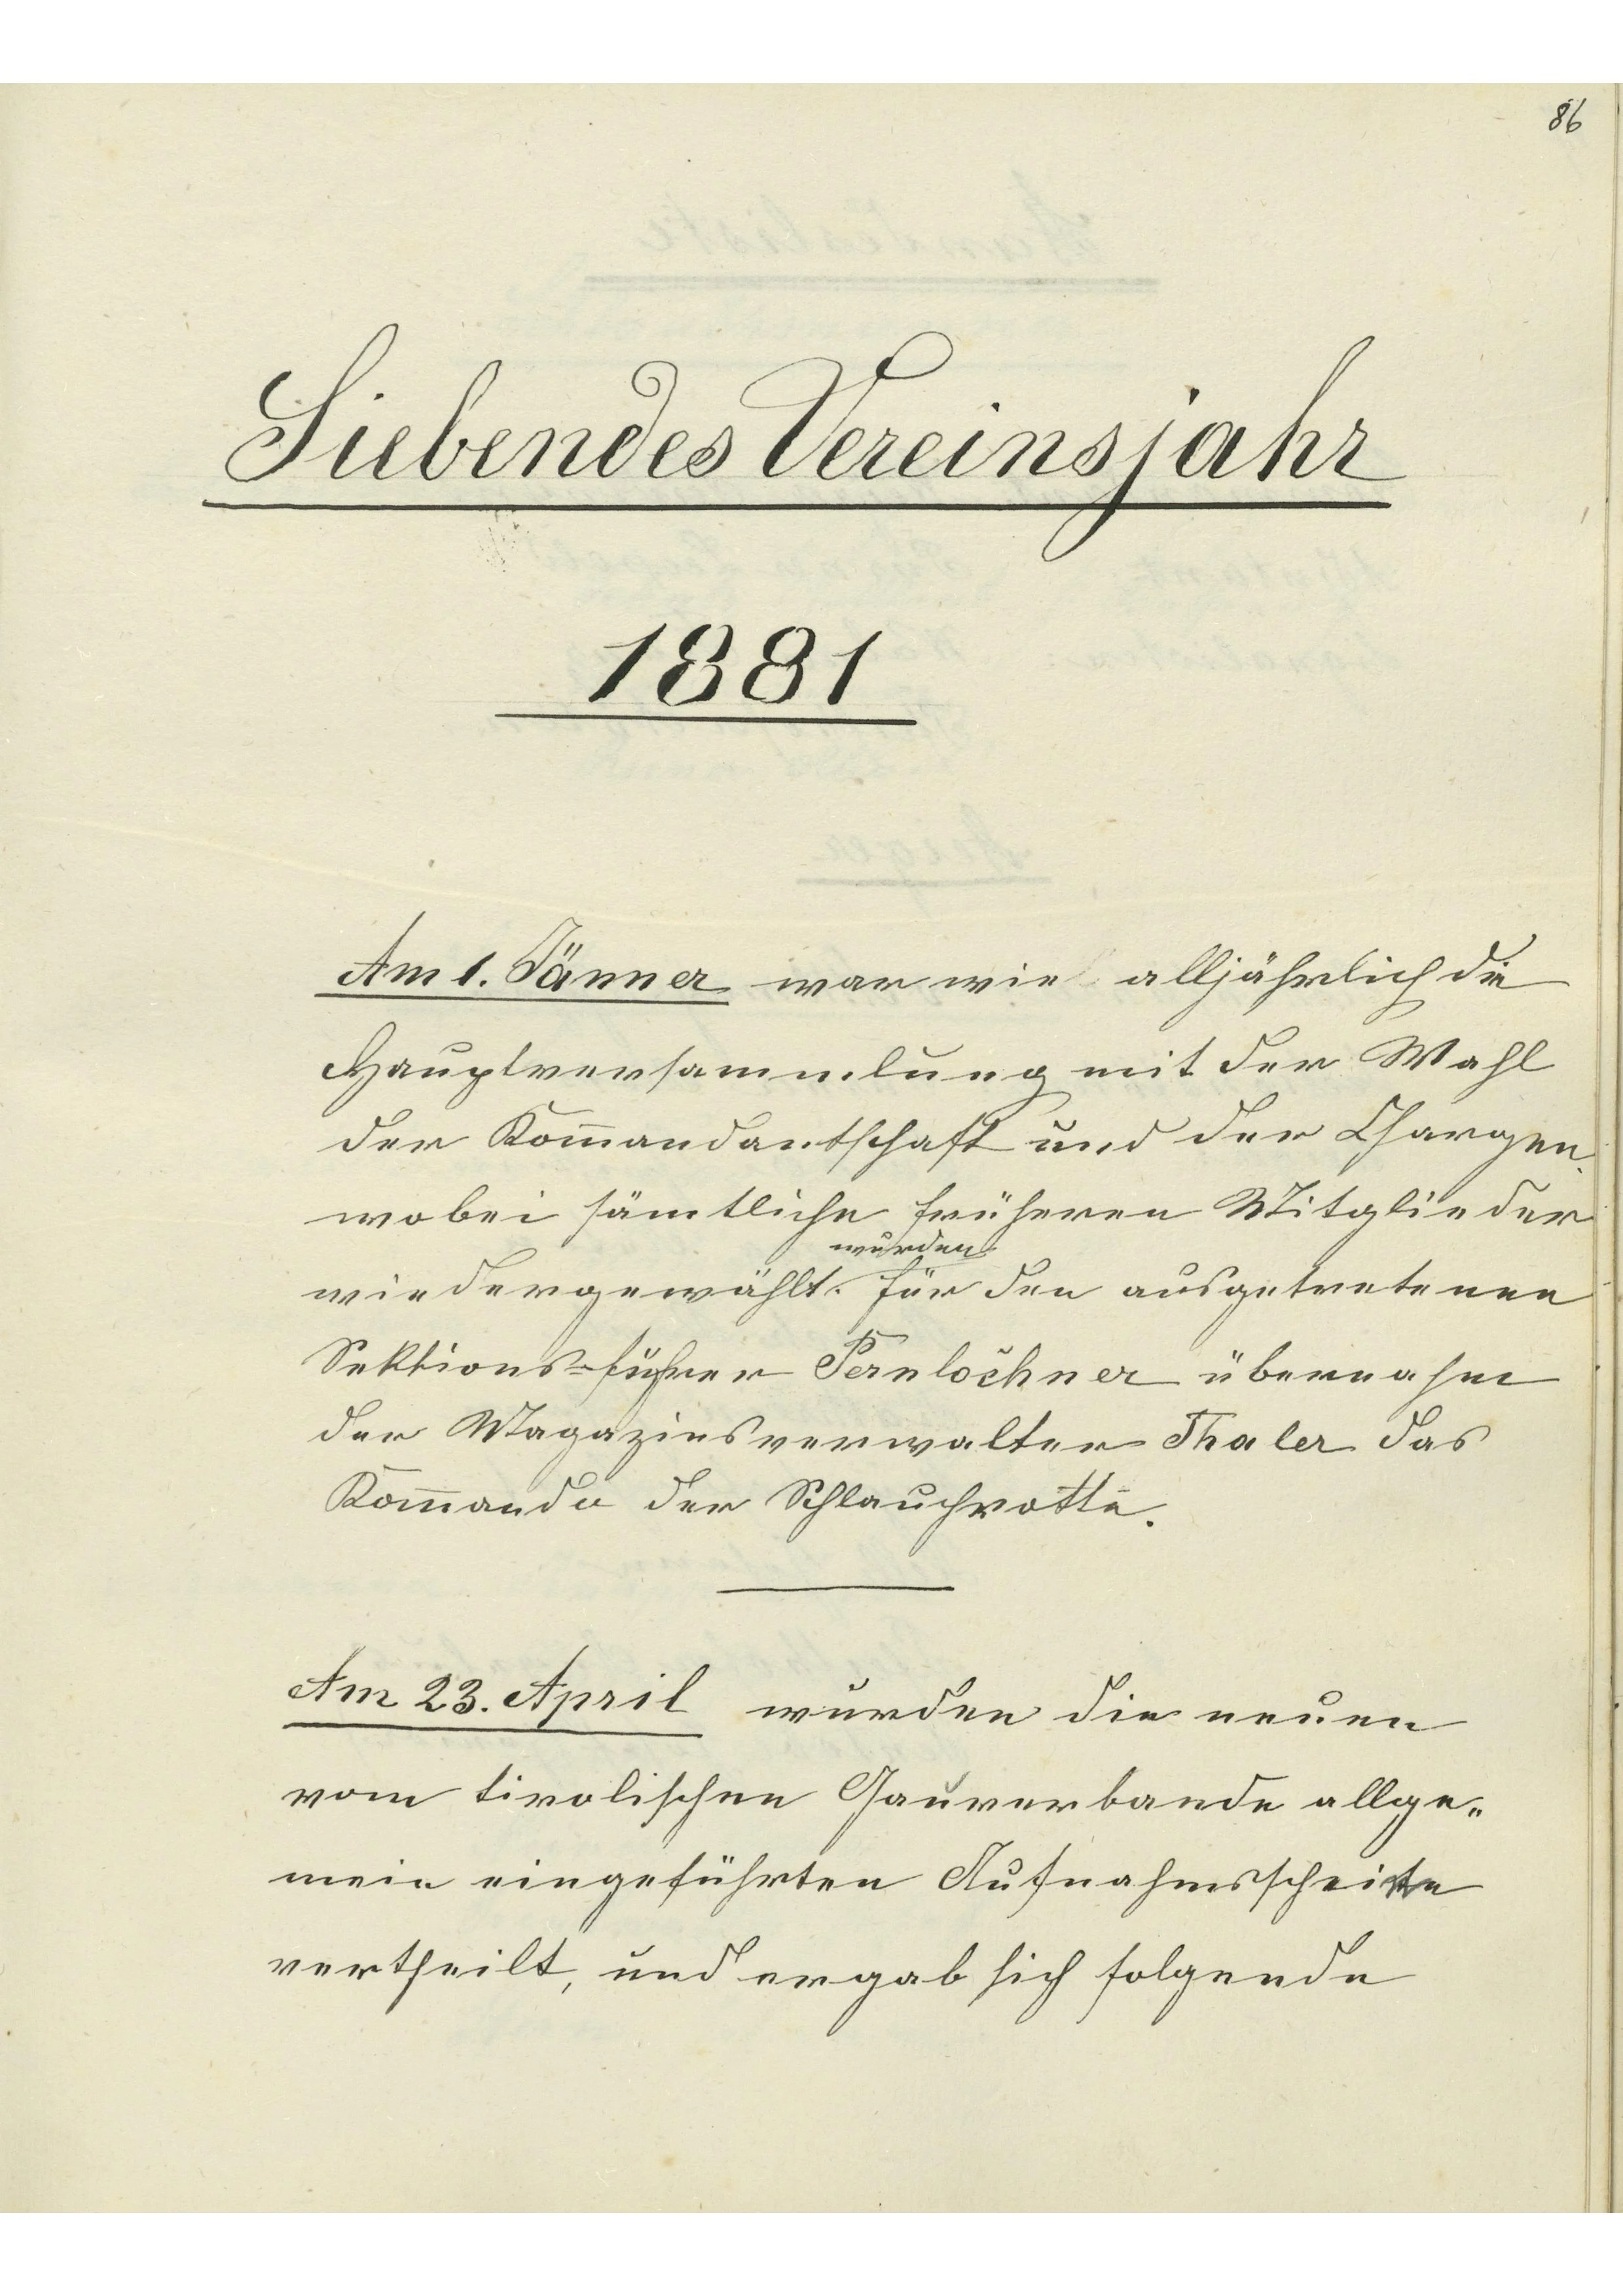 86
Siebendes Vereinsjahr
1881
Am 1. Jänner war wie alljährlich die
Hauptversammlung mit der Wahl
der Kom̄andantschaft und der Chargen.
wobei sämtliche früheren Mitglieder
wurden
wiedergewählt. Für den ausgetretenen
Sektions-führer Pernlochner übernahm
der Magazinsverwalter Thaler das
Kom̄ando der Schlauchrotte.
Am 23. April wurden die neuen
vom tirolischen Gauverbande allge„
mein eingeführten Aufnahmsscheine
vertheilt, und ergab sich folgende